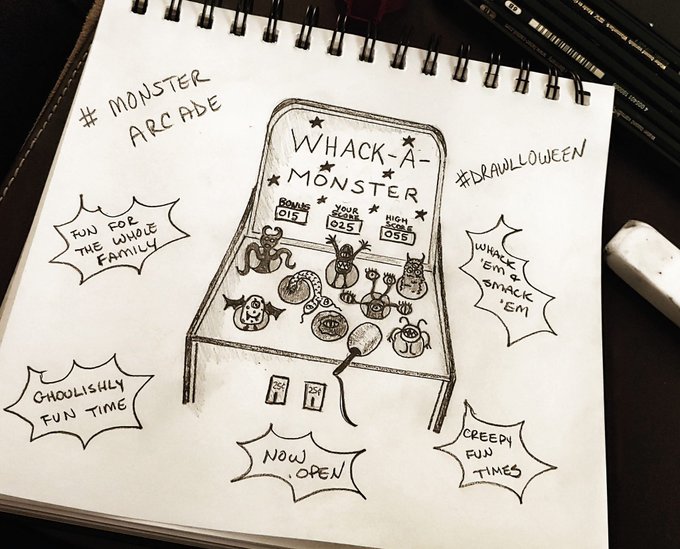 # MONSTER
ARCADE
#DRAWLLOWEEN
WHACK-A-
MONSTER
BONUS
015
YOUR
SCORE
025
HIGH
SCORE
055
FUN FOR
THE WHOLE
FAMILY
WHACK
'EM &
SMACK
'EM
GHOULISHLY
FUN TIME
25¢
25¢
NOW
OPEN
CREEPY
FUN
TIMES